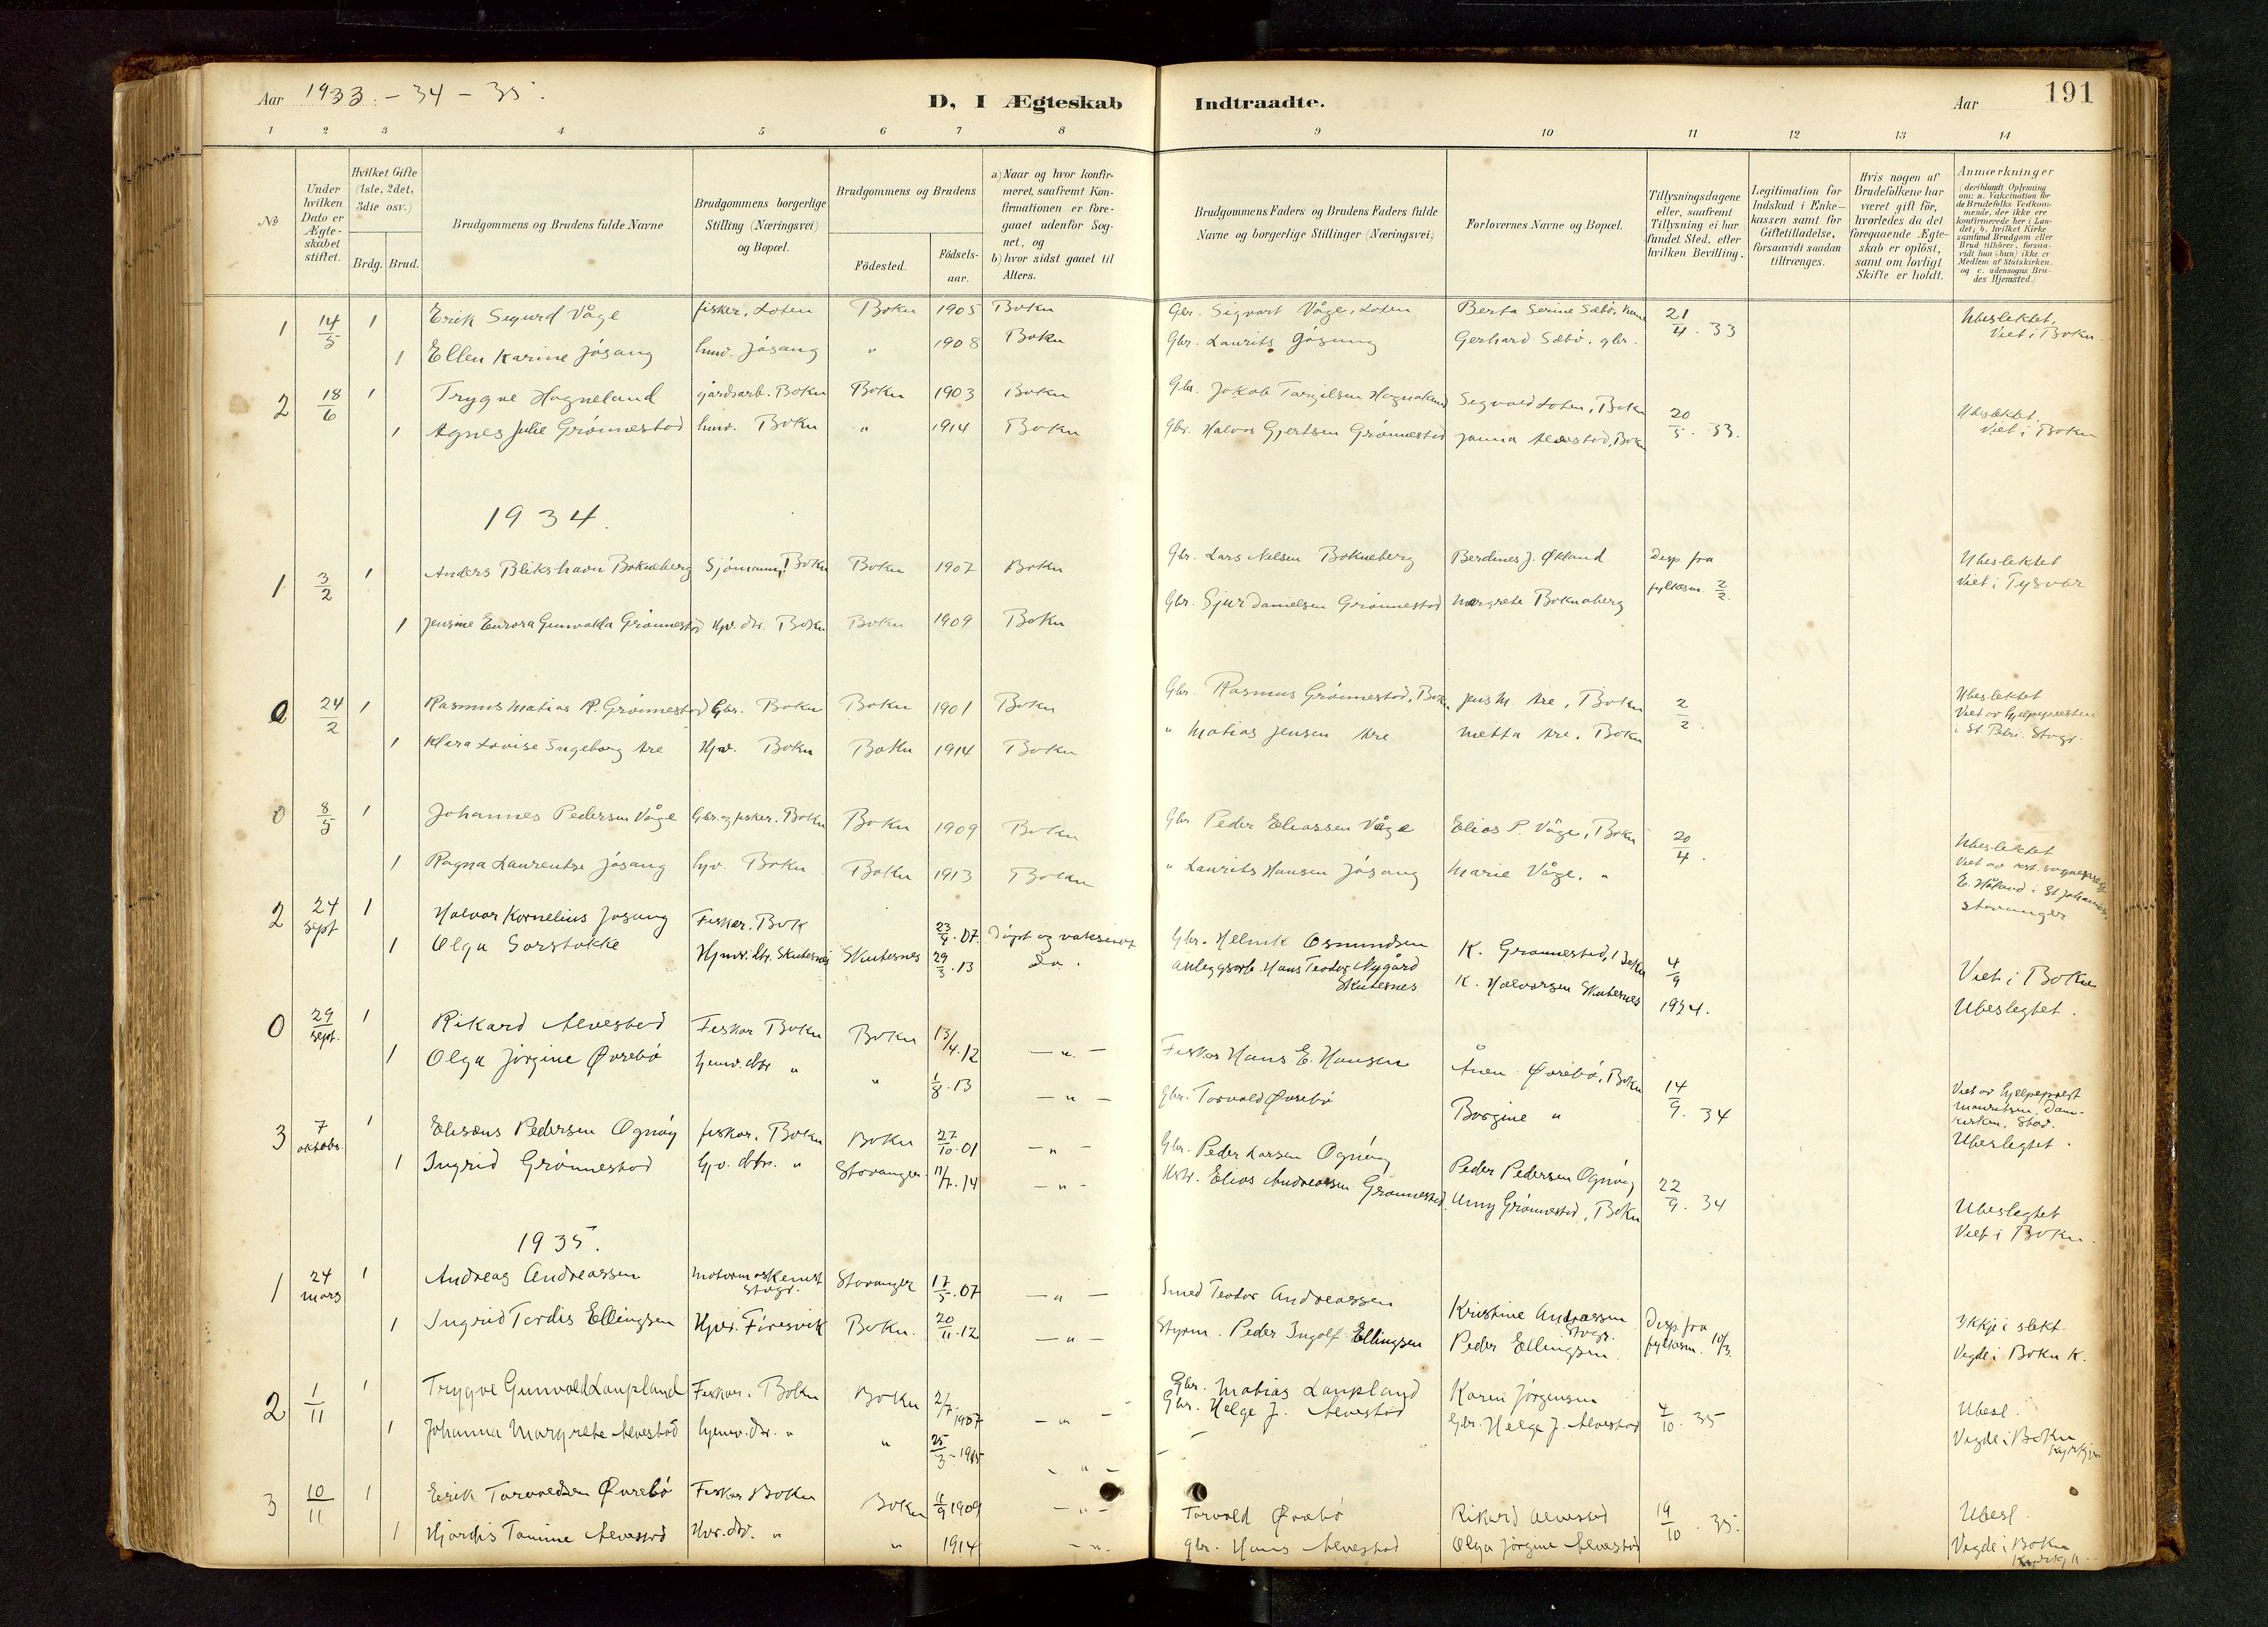 Aar 1933 - 34 - 35.
D, I Ægteskab Indtraadte.
Aar
191
1 2 3 4 5 6 7 8 9 10 11 12 13 14
№
Under hvilken Dato er Ægteskabet stiftet.
Hvilket Gifte (1ste, 2det, 3die osv.)
Brdg. Brud.
Brudgommens og Brudens fulde Navne
Brudgommens borgerlige Stilling (Næringsvei) og Bopæl.
Brudgommens og Brudens
Fødested. Fødsels-aar.
a) Naar og hvor konfirmeret, saafremt Konfirmationen er foregaaet udenfor Sognet, og
b) hvor sidst gaaet til Alters.
Brudgommens Faders og Brudens Faders fulde Navne og borgerlige Stillinger (Næringsvei)
Forlovernes Navne og Bopæl.
Tillysningsdagene eller, saafremt Tillysning ei har fundet Sted, efter hvilken Bevilling.
Legitimation for Indskud i Enkekassen samt for Giftetilladelse, forsaavidt saadan tiltrænges.
Hvis nogen af Brudefolkene har været gift før, hvorledes da det foregaaende Ægteskab er opløst, samt om lovligt Skifte er holdt.
Anmærkninger (deriblandt Oplysning om: a. Vakcination for de Brudefolks Vedkommende, der ikke ere konfirmerede her i Landet; b. hvilket Kirkesamfund Brudgom eller Brud tilhører, forsaavidt han (hun) ikke er Medlem af Statskirken, og c. udensogns Brudes Hjemsted.)
1 14/5 1 Erik Sigurd Våge fisker, Loten Bokn 1905 Bokn Gbr. Sigvart Våge, Loten Berta Serine Sæbø, 21/4. 33 Ubeslektet, Viet i Bokn.
1 Ellen Karine Jøsang husv. Jøsang " 1908 Bokn Gbr. Laurits Jøsang Gerhard Sæbø, gbr.
2 18/6 1 Trygve Hogneland gårdsarb. Bokn Bokn 1903 Bokn Gbr. Jakob Torgilsen Hognaland Segvald Loten, Bokn 20/5. 33. Ubeslektet, Viet i Bokn
1 Agnes Julie Grønnestad husv. Bokn " 1914 Bokn Gbr. Halvor Gjertsen Grønnestad Janna Alvestad, Bokn
1934.
1 3/2 1 Anders Blikshavn Bokneberg Sjømann, Bokn Bokn 1907 Bokn Gbr. Lars Nilsen Bokneberg Berdines J. Økland Disp. fra fylkesm. 2/2. Ubeslektet Viet i Tysvær
1 Jensine Eurora Gunvalda Grønnestad Hjv. dtr. Bokn Bokn 1909 Bokn Gbr. Sjur Danielsen Grønnestad Margrete Boknaberg
0 24/2 1 Rasmus Matias R. Grønnestad Gbr. Bokn Bokn 1901 Bokn Gbr. Rasmus Grønnestad, Bokn Jens M. Are, Bokn 2/2. Ubeslektet Viet av hjelpepresten i St. Petri. Stvgr.
1 Klara Lovise Ingeborg Are Hjv. Bokn Bokn 1914 Bokn " Matias Jensen Are Metta Are, Bokn
0 8/5 1 Johannes Pedersen Våge Gbr. og fisker. Bokn Bokn 1909 Bokn Gbr Peder Eliassen Våge Elias P. Våge, Bokn 20/4. Ubeslektet Viet av res. sogneprest E. Håland i St. Johannes, Stavanger
1 Ragna Laurentse Jøsang hjv. Bokn Bokn 1913 Bokn " Laurits Hansen Jøsang Marie Våge. "
2 24 sept 1 Halvor Kornelius Jøsang Fisker, Bok 23/4. 07. Døpt og vaksinert Gbr. Helmik Osmundsen K. Grønnestad, Bokn 4/9 1934. Viet i Bokn Ubeslegtet.
1 Olga Sorstokke Hjmv. dtr. Skutesnes Skutesnes 29/3. 13 do. anleggsarb. Hans Teodor Nygård Skutesnes K. Halvorsen Skutesnes
0 29 sept. 1 Rikard Alvestad Fisker Bokn Bokn 13/4. 12 — " — Fisker Hans E. Hansen Ånen Øvrebø, Bokn 14/9. 34 Viet av hjelpeprest Mauritsen, Domkirken, Stav. Ubeslegtet.
1 Olga Jørgine Øvrebø hjemv. dtr " " 1/8. 13 — " — Gbr. Torvald Øvrebø Borgine "
3 7 oktober 1 Elisæus Pedersen Ognøy fisker, Bokn Bokn 27/10. 01 — " — Gbr. Peder Larsen Ognøy Peder Pedersen Ognøy 22/9. 34 Ubeslegtet Viet i Bokn.
1 Ingrid Grønnestad hjv. dtr. " Stavanger 11/7. 14 — " — Elias Andreassen Grønnestad. Unny Grønnestad, Bokn
1935.
1 24 mars 1 Andreas Andreassen motormaskinist Stvgr. Stavanger 17/5. 07 — " — Smed Teodor Andreassen Kristine Andreassen Stvgr. Disp. fra fylkesm. 10/3. Ikkje i slekt. Vigde i Bokn K.
1 Ingrid Tordis Ellingsen Hjv. Føresvik Bokn. 20/11. 12 — " — Styrm. Peder Ingolf Ellingsen Peder Ellingsen.
2 1/11 1 Trygve Gunvald Laupland Fisker. Bokn Bokn 2/7. 1907 — " — Gbr. Matias Laupland Karen Jørgensen 4/10. 35 Ubesl. Vigde i Bokn
1 Johanna Margrete Alvestad hjemv. dtr. " " 25/3 - 1915 — " — Gbr. Helge J. Alvestad Gbr. Helge J. Alvestad
3 10/11 1 Erik Torvaldsen Øvrebø Fisker Bokn Bokn 11/9 1909 — " — Torvald Øvrebø Rikard Alvestad 19/10. 35. Ubesl. Vigde i Bokn
1 Hjørdis Tomine Alvestad Hv. dtr. " " 1914 — " — gbr. Hans Alvestad Olga Jørgine Alvestad